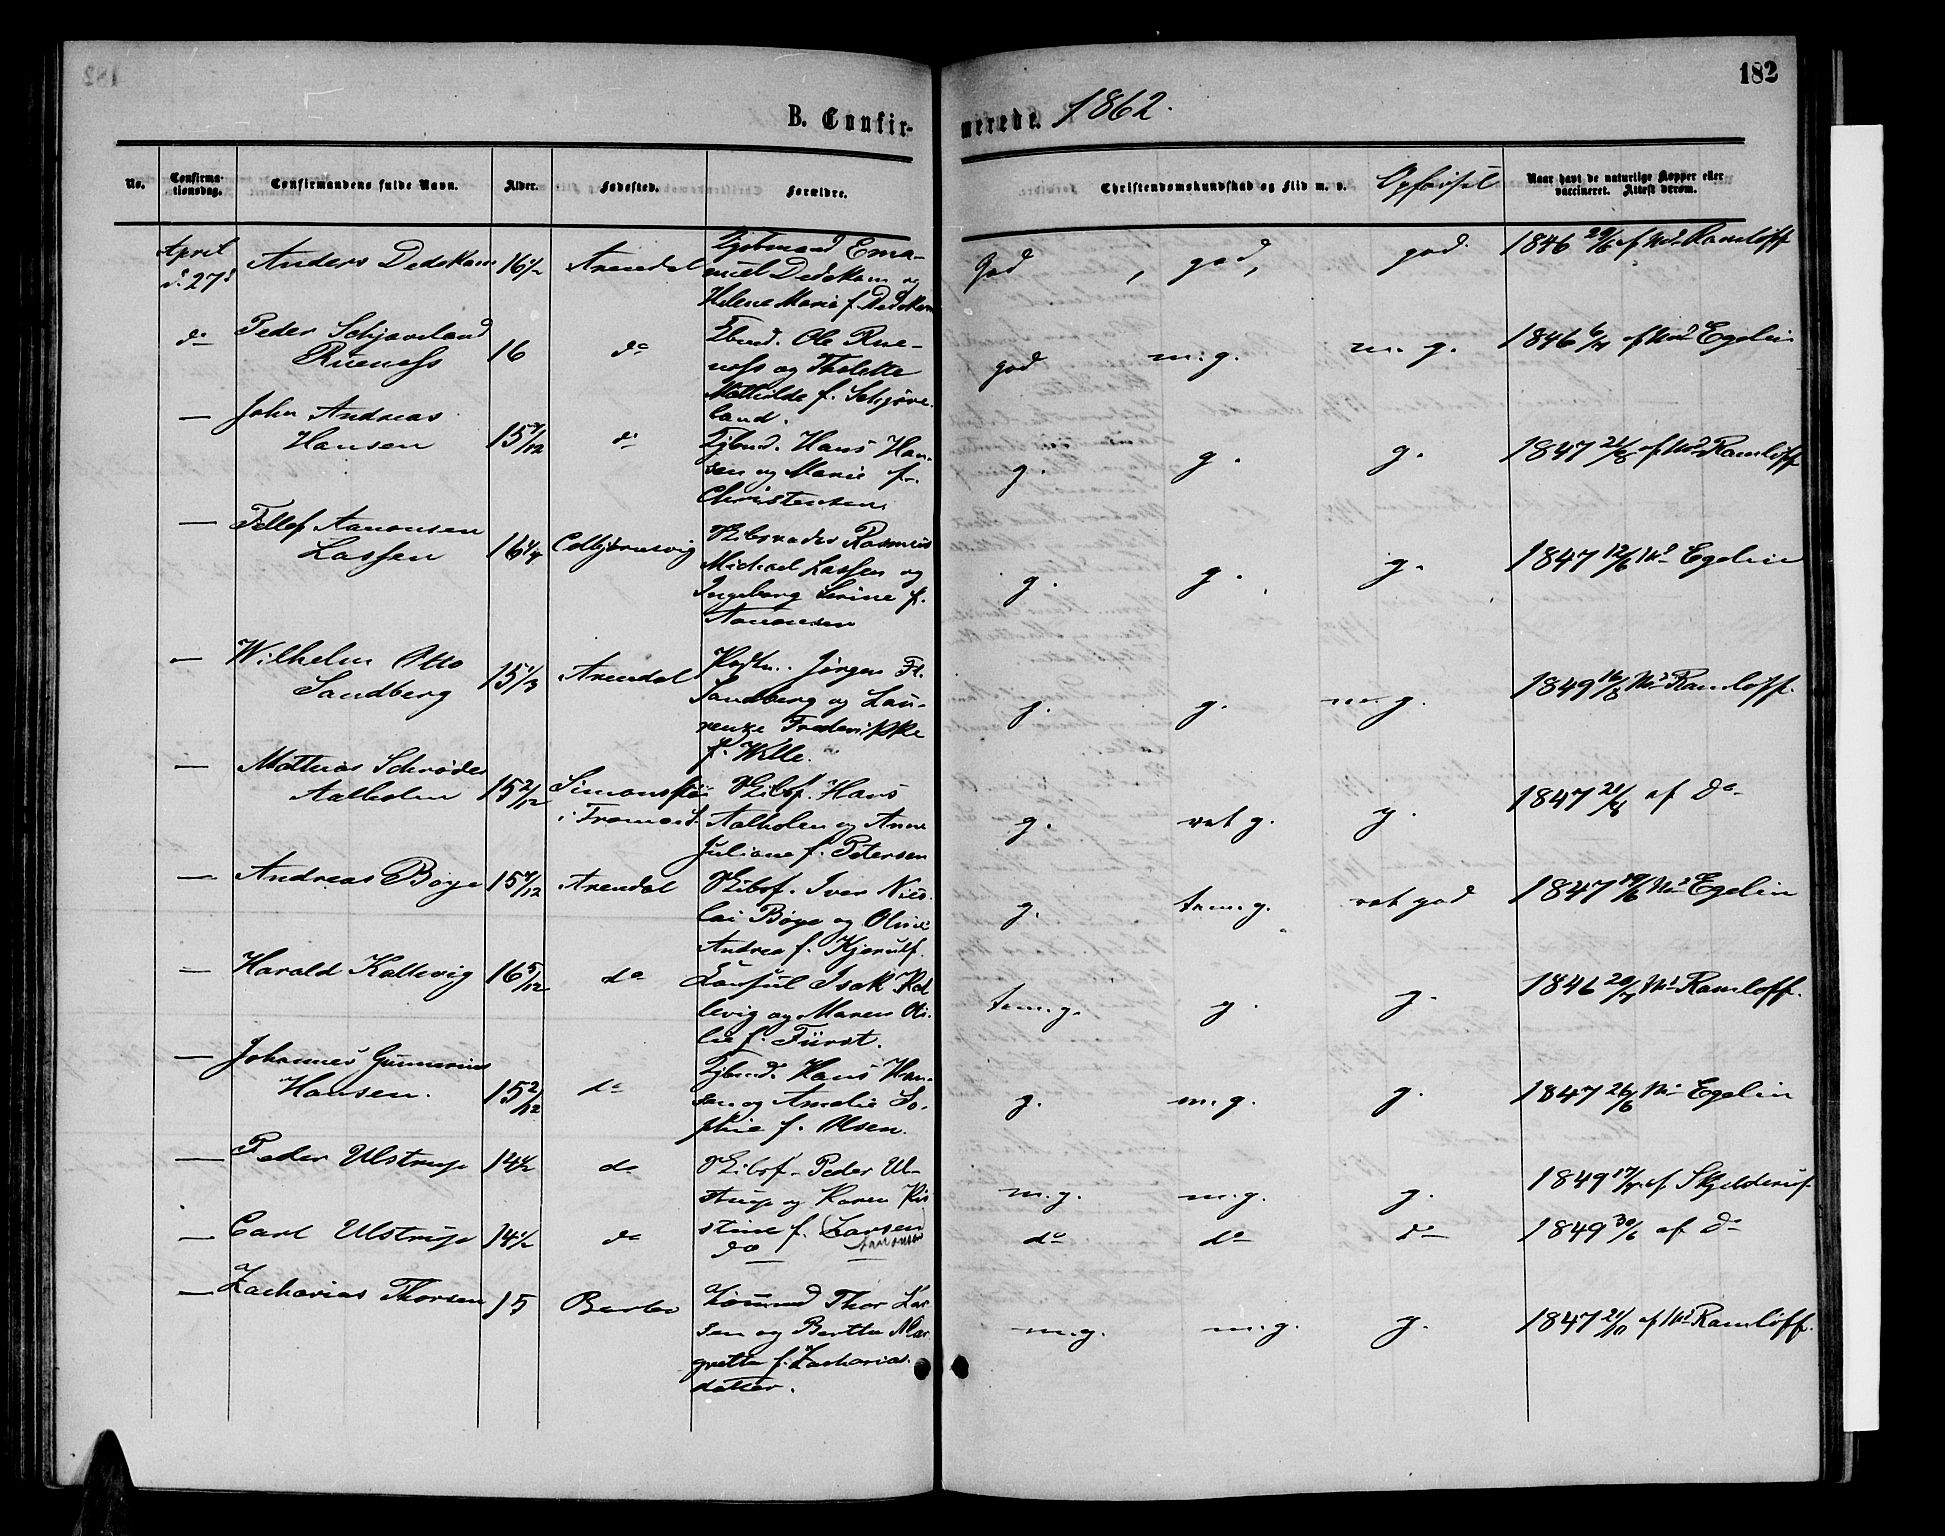 182
B. Confir- merede. 1862.
No. Confirma- tionsdag. Confirmandens fulde Navn. Alder. Fødested. Forældre. Christendomskundskab og Flid m. v. Opførsel Naar havt de naturlige Kopper eller vaccineret. Attest derom.
April d. 27d Anders Dedekam 16½ Arendal Kjøbmand Ema-
nuel Dedekam og
Helene Marie f. Dedekam
God, god, god. 1846 af Ramløff
do Peder Schjaveland
Rueness 16 do Ole Rue-
ness og Tholekke
Mathilde f. Schjøve-
land.
god m.g. m.g. 1846 af Egelin
— John Andreas
Hansen do Kjbmd. Hans Han-
sen og Marie f.
Christensen
g. g. g. 1847 af Ramløff
— Tellef Aanonsen
Lassen 16¼ Colbjørnsvig Rasmus
Michael Lassen og
Ingeborg Serine f.
Aanonsen
g. g. g. 1847 12/6 Egelin
— Wilhelm Otto
Sandberg 15 1/3 Arendal Jørgen Fl.
Sandberg og Lau-
renze Frederikke
f. Wille.
g. g. m.g. 1849 16/8 Ramløff.
— Mathias Schrøder
Aalholm 15 2/12
i Tromø Skibsf. Hans
Aalholm og Anne
Juliane f. Petersen
g. ret g. g. 1847 af do
— Andreas Bøye 15 Arendal Skibsf. Iver Nico-
lai Bøye og Oline
Andrea f. Kjerulf.
g. tem.g. ret god 1847 Egelin
— Harald Kallevig 16 5/12 do Consul Isak Kal-
levig og Maren Oli-
lie f. Fürst.
tem.g. g. g. 1846 Ramløff.
— Johannes Gunnerius
Hansen. 15 2/12 do Kjbmd. Hans Han-
sen og Amalie So-
phie f. Olsen.
g. m.g. g. 1847 26/6 Egelin
— Peder Ulstrup 14½ do Skibsf. Peder Ul-
strup og Karen Kir-
stine f. (Larsen)
Aanonsen
m.g. m.g. g. 1849 af Skjelderup.
— Carl Ulstrup 14½ do do do do do 1849 30/6 af do
— Zacharias Thorsen 15 Barbo Thor Lar-
sen og Berthe Mar-
grethe f. Zacharias-
datter.
m.g. m.g. g. 1847 21/10 af Ramløff.